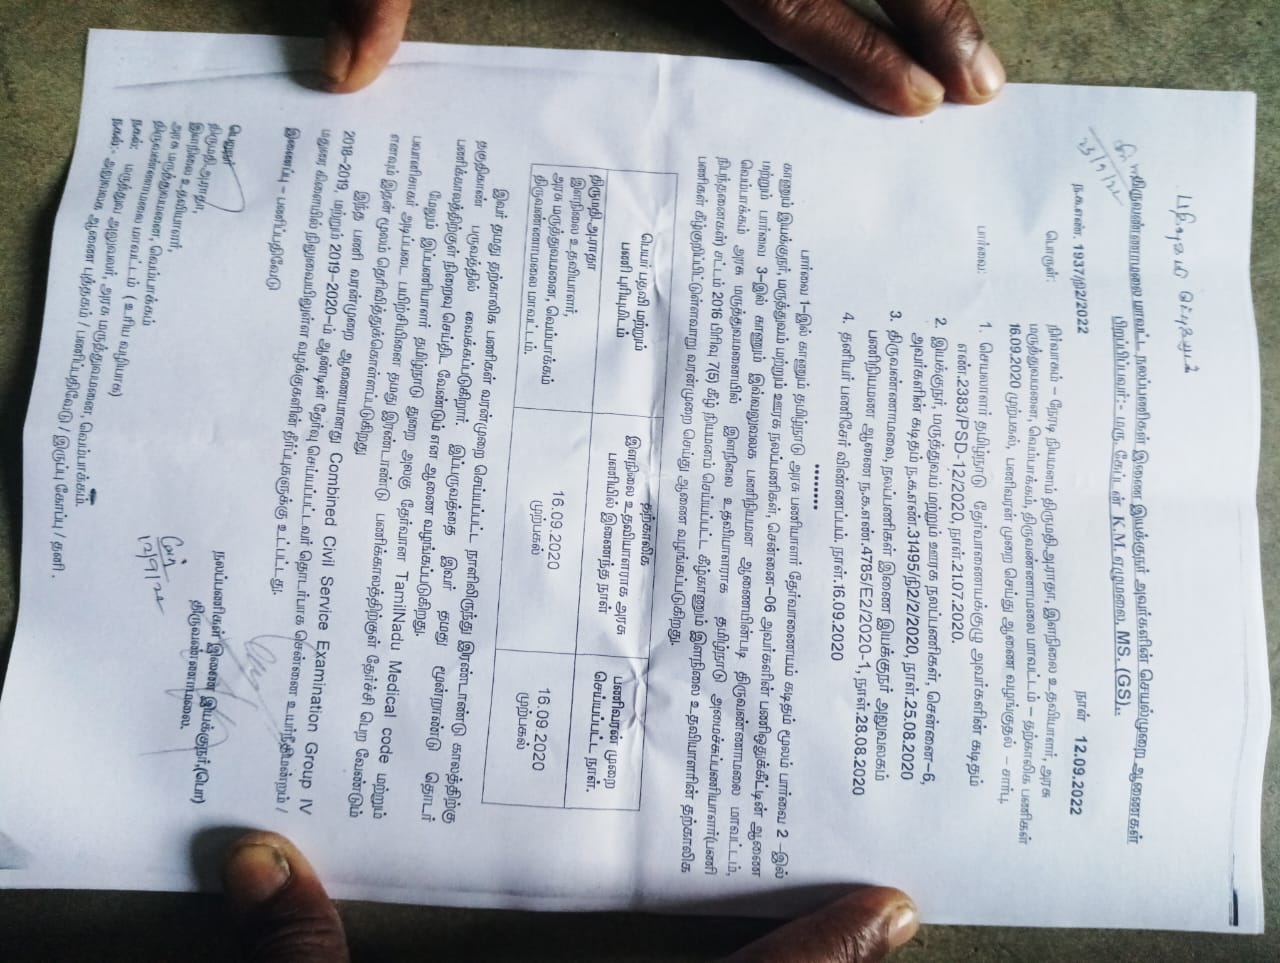 பதிவஞ்சல் செய்யவும்
திருவண்ணாமலை மாவட்ட நலப்பணிகள் இணை இயக்குநர் அவர்களின் செயல்முறை ஆணைகள்
பிறப்பிப்பவர்:- மரு. கேப்டன் K.M. ஏழுமலை, MS. (GS).,
23/9/22
ந.க.எண். 1937/நி2/2022 நாள் 12.09.2022
பொருள்: நிர்வாகம் – நேரடி நியமனம் திருமதி.அராதா, இளநிலை உதவியாளர், அரசு
மருத்துவமனை, வெம்பாக்கம், திருவண்ணாமலை மாவட்டம் – தற்காலிக பணிகள்
16.09.2020 முற்பகல், பணிவரன் முறை செய்து ஆணை வழங்குதல் – சார்பு.
பார்வை: 1. செயலாளர் தமிழ்நாடு தேர்வாணையக்குழு அவர்களின் கடிதம்
எண்.2383/PSD-12/2020, நாள்.21.07.2020.
2. இயக்குநர், மருத்துவம் மற்றும் ஊரக நலப்பணிகள், சென்னை–6,
அவர்களின் கடிதம் ந.க.எண்.31495/நி2/2/2020, நாள்.25.08.2020
3. திருவண்ணாமலை, நலப்பணிகள் இணை இயக்குநர் அலுவலகம்
பணிநியமன ஆணை ந.க.எண்.4785/E2/2020-1, நாள்.28.08.2020
4. தனியர் பணிசேர் விண்ணப்பம். நாள்.16.09.2020
********
பார்வை 1–இல் காணும் தமிழ்நாடு அரசு பணியாளர் தேர்வாணையம் கடிதம் மூலம் பார்வை 2 –இல்
காணும் இயக்குநர், மருத்துவம் மற்றும் ஊரக நலப்பணிகள், சென்னை–06 அவர்களின் பணிஒதுக்கீட்டின் ஆணை
மற்றும் பார்வை 3–இல் காணும் இவ்வலுவலக பணிநியமன ஆணையின்படி திருவண்ணாமலை மாவட்டம்,
வெம்பாக்கம் அரசு மருத்துவமனையில் இளநிலை உதவியாளராக தமிழ்நாடு அமைச்சுப்பணியாளர்(பணி
நிபந்தனைகள்) சட்டம் 2016 பிரிவு 7(5) கீழ் நியமனம் செய்யப்பட்ட கீழ்காணும் இளநிலை உதவியாளரின் தற்காலிக
பணிகள் கீழ்குறிப்பிட்டுள்ளவாறு வரன்முறை செய்து ஆணை வழங்கப்படுகிறது.
பெயர் பதவி மற்றும் பணி புரியுமிடம்
தற்காலிக இளநிலை உதவியாளராக அரசு பணியில் இணைந்த நாள்
பணிவரன் முறை செய்யப்பட்ட நாள்.
திருமதி.அராதா
இளநிலை உதவியாளர்,
அரசு மருத்துவமனை, வெம்பாக்கம்
திருவண்ணாமலை மாவட்டம்.
16.09.2020 முற்பகல்
16.09.2020 முற்பகல்
இவர் தமது தற்காலிக பணிகள் வரன்முறை செய்யப்பட்ட நாளிலிருந்து இரண்டாண்டு காலத்திற்கு
தகுதிகாண் பருவத்தில் வைக்கப்படுகிறார். இப்பருவத்தை இவர் தமது மூன்றாண்டு தொடர்
பணிக்காலத்திற்குள் நிறைவு செய்திட வேண்டும் என ஆணை வழங்கப்படுகிறது.
மேலும் இப்பணியாளர் தமிழ்நாடு துறை அலகு தேர்வான TamilNadu Medical code மற்றும்
பவானிசாகர் அடிப்படை பயிற்சியினை தமது இரண்டாண்டு பணிக்காலத்திற்குள் தேர்ச்சி பெற வேண்டும்
எனவும் இதன் மூலம் தெரிவித்துக்கொள்ளப்படுகிறது
இந்த பணி வரன்முறை ஆணையானது Combined Civil Service Examination Group IV
2018–2019, மற்றும் 2019–2020–ம் ஆண்டின் தேர்வு செய்யப்பட்டவர் தொடர்பாக சென்னை உயர்நீதிமன்றம் /
மதுரை கிளையில் நிலுவையிலுள்ள வழக்குகளின் தீர்ப்புகளுக்கு உட்பட்டது.
இணைப்பு – பணிப்பதிவேடு
12/9/22
நலப்பணிகள் இணை இயக்குநர்,(பொ)
திருவண்ணாமலை.
பெறுநர்
திருமதி.அராதா,
இளநிலை உதவியாளர்,
அரசு மருத்துவமனை, வெம்பாக்கம்
திருவண்ணாமலை மாவட்டம் ( உரிய வழியாக)
நகல்: மருத்துவ அலுவலர், அரசு மருத்துவமனை, வெம்பாக்கம்.
நகல்:- அலுவலக ஆணை புத்தகம் / பணிப்பதிவேடு / இருப்பு கோப்பு / தனி.